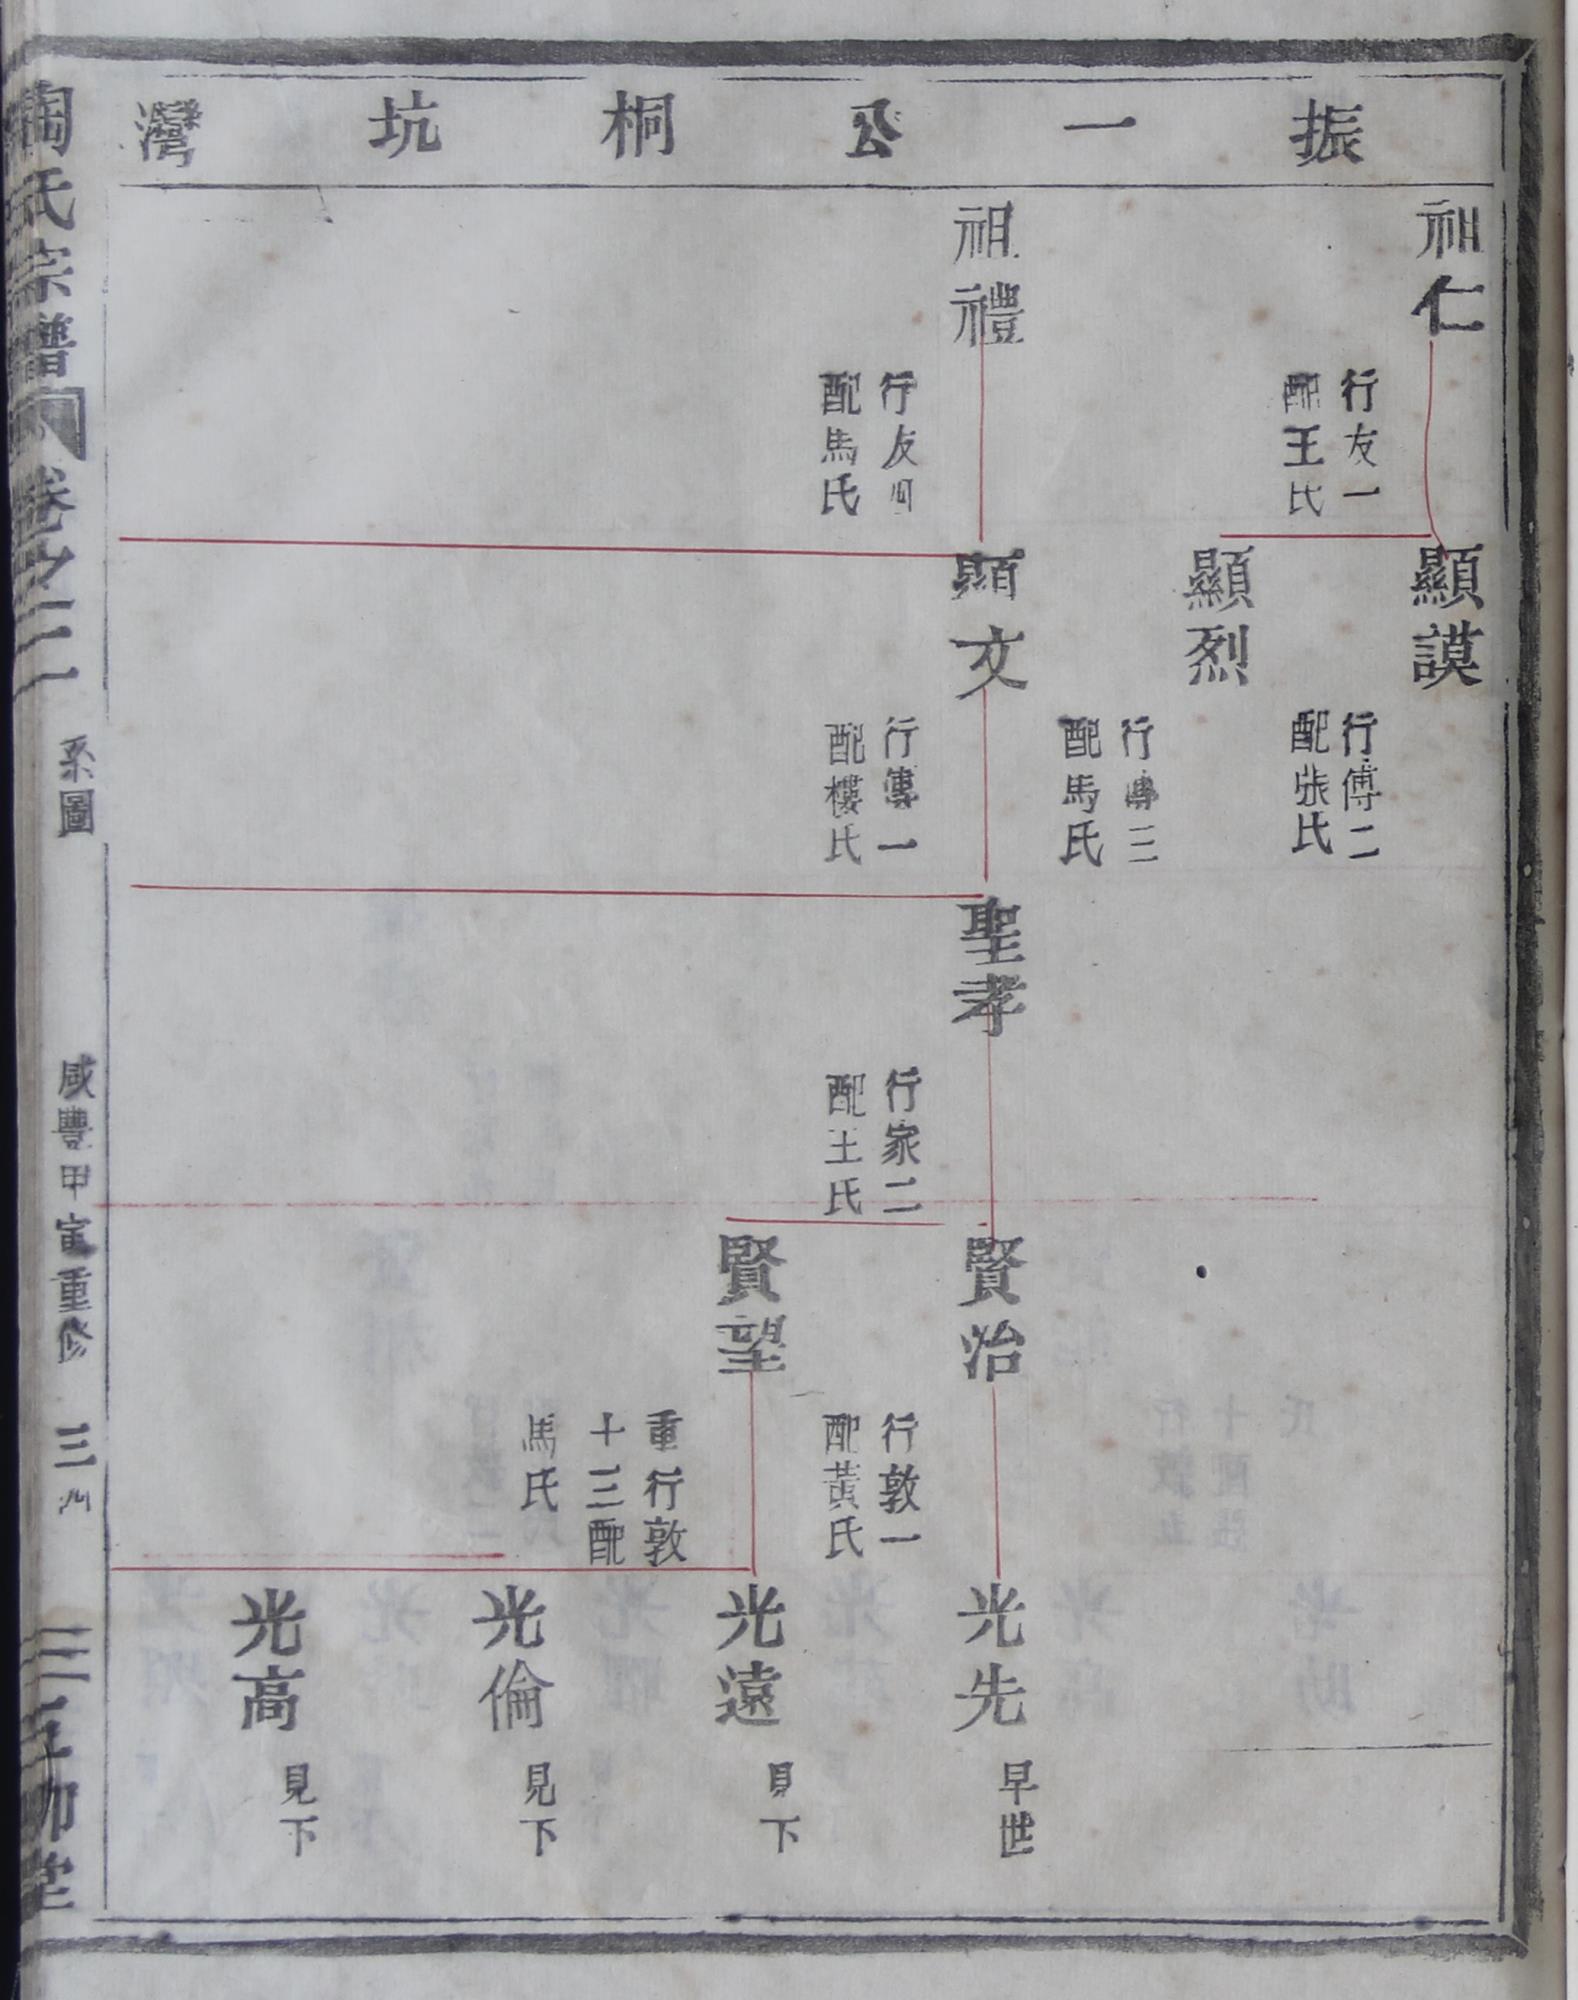 振一公桐坑灣
祖仁
行友一
配王氏
祖禮
行友四
配馬氏
顯謨
行傳二
配張氏
顯烈
行傳三
配馬氏
顯文
行傳一
配樓氏
聖孝
行家二
配王氏
賢治
行敦一
配黃氏
賢望
重行敦
十三配
馬氏
光先
早世
光遠
見下
光倫
見下
光高
見下
陶氏宗譜
卷之二
系圖
咸豐甲寅重修
三
五柳堂